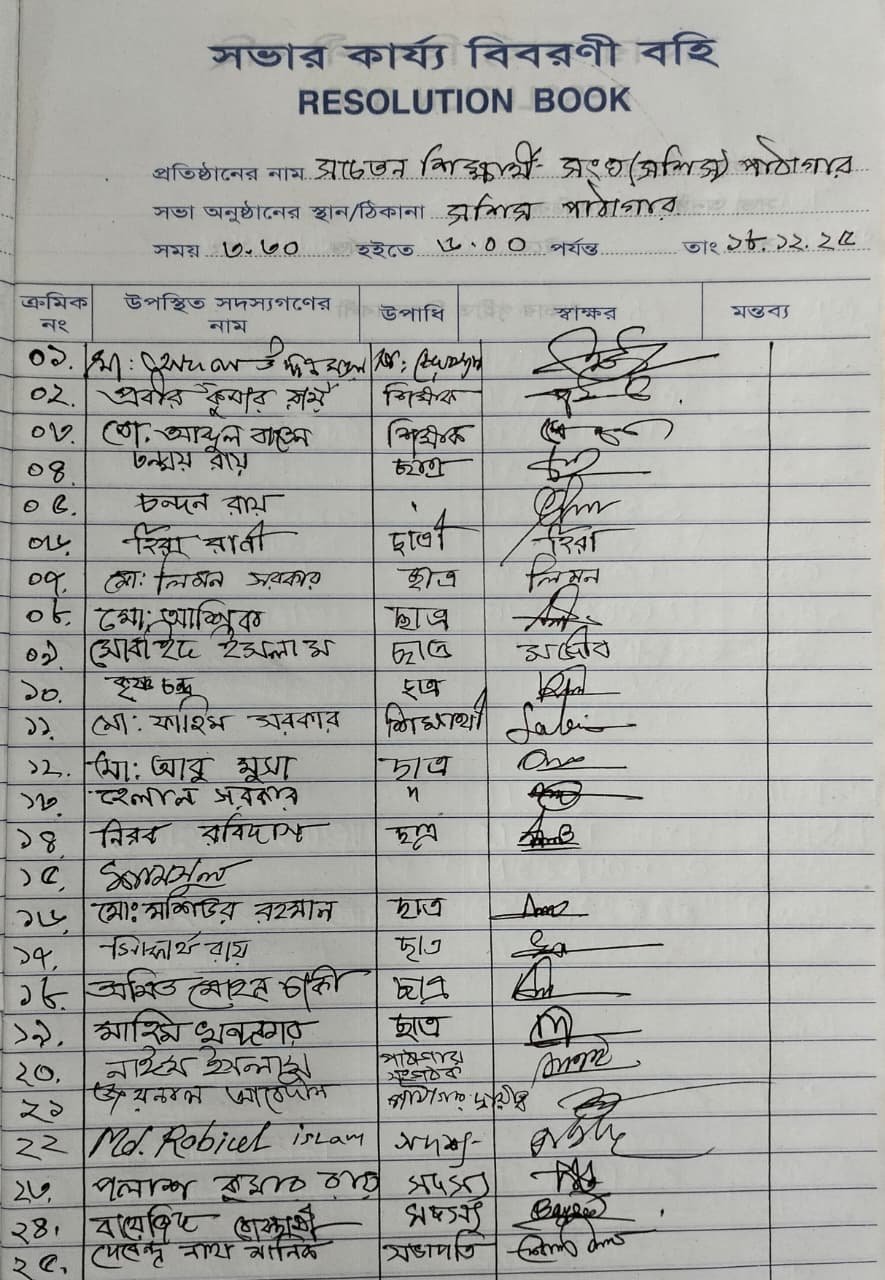 সভার কার্য্য বিবরণী বহি
RESOLUTION BOOK
প্রতিষ্ঠানের নাম সচেতন শিক্ষার্থী সংঘ (সশিস) পাঠাগার
সভা অনুষ্ঠানের স্থান/ঠিকানা সশিস পাঠাগার
সময় ৩.৩০ হইতে ৫.০০ পর্যন্ত তাং ১৮.১২.২৫
ক্রমিক নং উপস্থিত সদস্যগণের নাম উপাধি স্বাক্ষর মন্তব্য
০১. মো:
০২. প্রবীর কুমার রায় শিক্ষক
০৩. মো. আব্দুল শিক্ষক
০৪. তন্ময় রায় ছাত্র
০৫. চন্দন রায় "
০৬. হিরা রানী ছাত্রী হিরা
০৭. মো: লিমন সরকার ছাত্র লিমন
০৮. মো: আশিক ছাত্র
০৯. ইসলাম ছাত্র সজীব
১০. কৃষ্ণ চন্দ্র ছাত্র
১১. মো. ফাহিম সরকার শিক্ষার্থী
১২. মো: আবু মুসা ছাত্র
১৩. হেলাল সরকার "
১৪. নিরব রবিদাস ছাত্র
১৫.
১৬. মো: মশিউর রহমান ছাত্র
১৭. রায় ছাত্র
১৮. অমিত চাকী ছাত্র
১৯. মাহিম ছাত্র
২০. নাইম ইসলাম পাঠাগার সংগঠক
২১
২২ Md. Robiul islam সদস্য
২৩. পলাশ কুমার রায় সদস্য
২৪. বায়েজিদ সদস্য Bayzed
২৫. দেবেন্দ্র নাথ মানিক সভাপতি